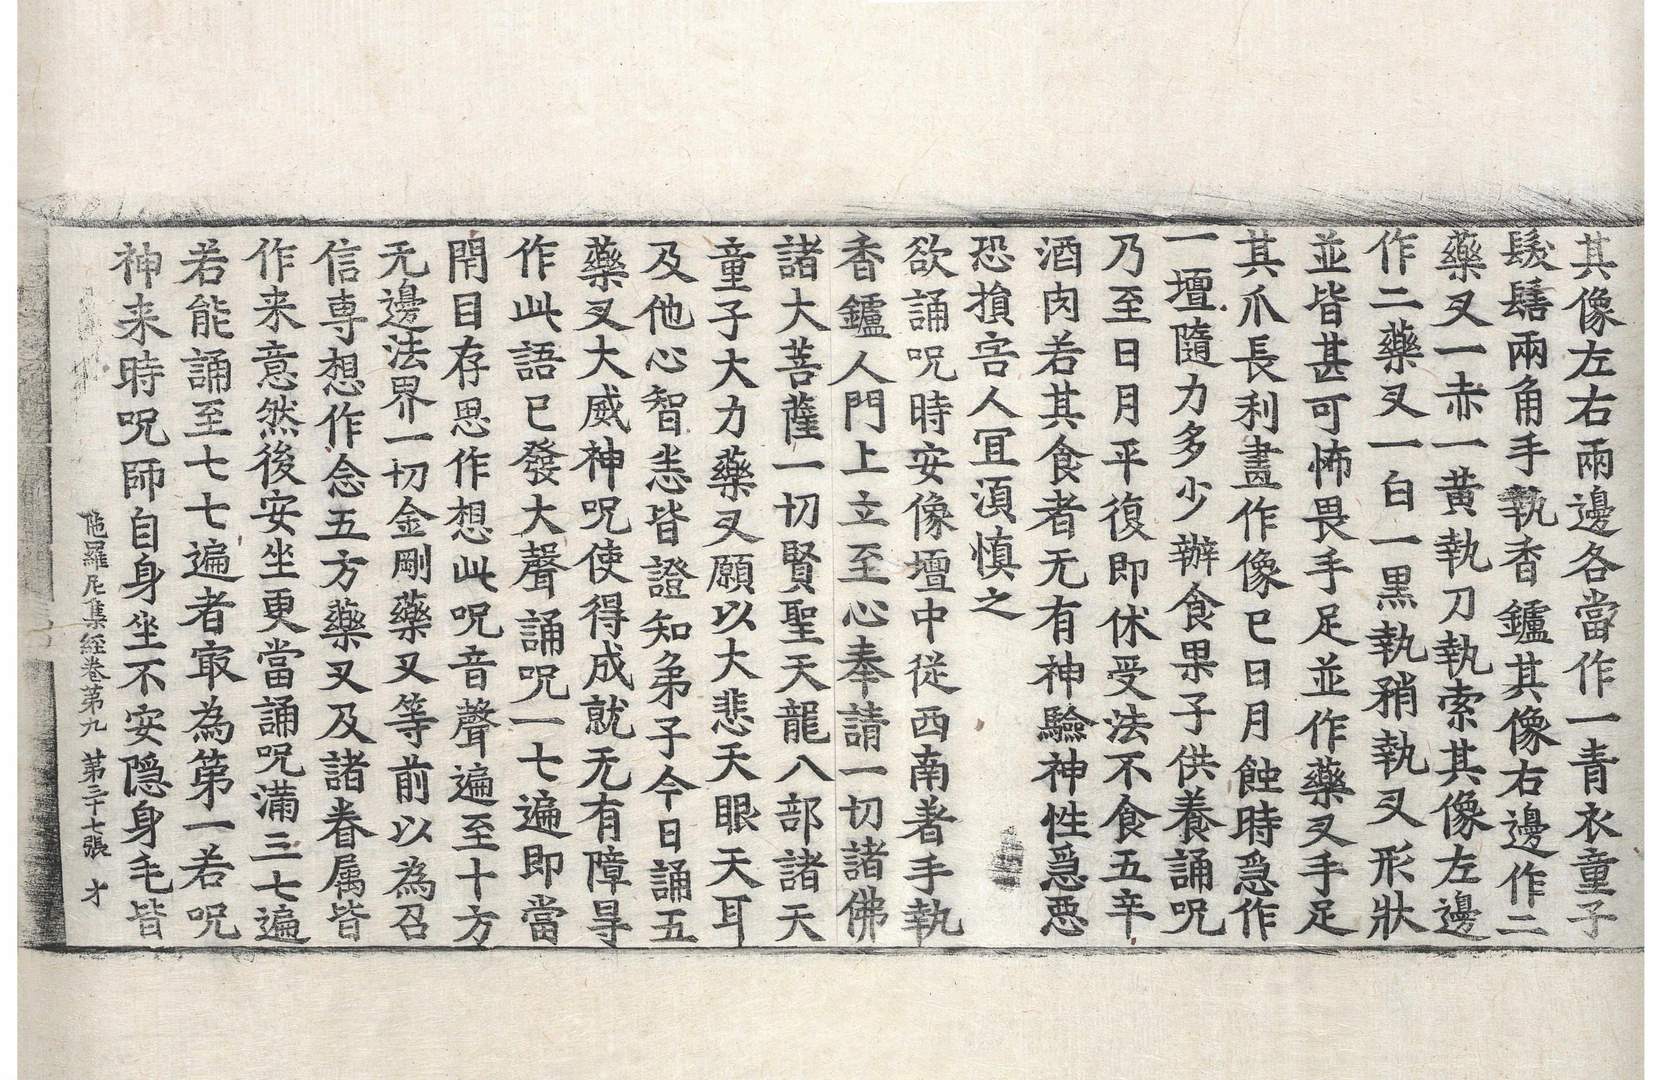 其像左右兩邊各當作一青衣童子
髮髻兩角手執香鑪其像右邊作二
藥叉一赤一黃執刀執索其像左邊
作二藥叉一白一黑執矟執叉形狀
並皆甚可怖畏手足並作藥叉手足
其爪長利畫作像已日月蝕時爲作
一壇隨力多少辦食果子供養誦呪
乃至日月平復即休受法不食五辛
酒肉若其食者无有神驗神性爲惡
恐損害人冝湏慎之
欲誦呪時安像壇中從西南著手執
香鑪人門上立至心奉請一切諸佛
諸大菩薩一切賢聖天龍八部諸天
童子大力藥叉願以大悲天眼天耳
及他心智悉皆證知弟子今日誦五
藥叉大威神呪使得成就无有障㝵
作此語已發大聲誦呪一七遍即當
閇目存思作想此呪音聲遍至十方
无邊法界一切金剛藥叉等前以為召
信専想作念五方藥叉及諸眷属皆
作来意然後安坐更當誦呪滿三七遍
若能誦至七七遍者㝡為第一若呪
神来時呪師自身坐不安隠身毛皆
陁羅尼集経卷第九 第三十七張 才